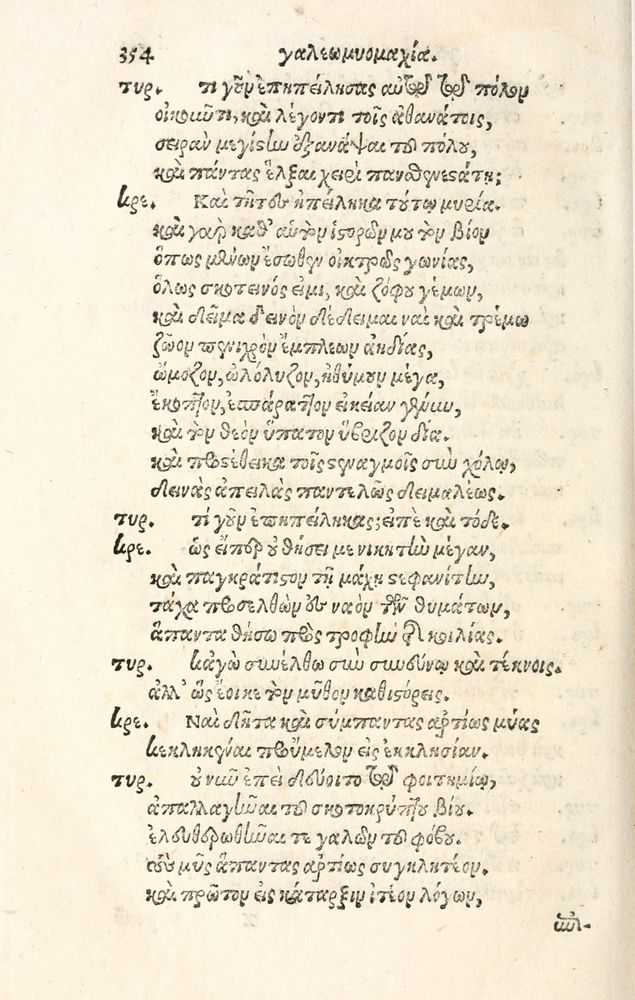 354 γαλεωμυομαχία.
τυρ. τί γοῦν ἐπηπείλησας αὐτῷ τῷ πόλον
οἰκοῦντι, καὶ λέγοντι τοῖς ἀθανάτοις,
σειρὰν μεγίστην ἐξανάψαι τοῦ πόλου,
καὶ πάντας ἕλξαι χειρὶ πανσθενεστάτῃ;
κρε. Καὶ τῆτον ἠπείληκα τούτῳ μυρία.
καὶ γὰρ καθ' αὑτὸν ἱστορῶν μου τὸν βίον
ὅπως μένων ἔσωθεν οἰκτρᾶς γωνίας,
ὅλως σκοτεινός εἰμι, καὶ ζόφου γέμων,
καὶ δεῖμα δεινὸν δέδειμαι ναὶ καὶ τρέμω
ζῶον πνιχρὸν ἔμπλεων ἀηδίας,
ᾤμοζον, ὠλόλυζον, ἠθύμουν μέγα,
ἐκοπτον, ἐσπάραττον εἰκείαν γένυν,
καὶ τὸν θεὸν ὕπατον ὕβριζον δία.
καὶ προσέθεικα τοῖς στεναγμοῖς σὺν χόλῳ,
δεινὰς ἀπειλὰς παντελῶς δειμαλέως.
τυρ. τί γοῦν ἐπηπείληκας; εἰπὲ καὶ τόδε.
κρε. ὡς εἴπερ οὐ θήσει με νικητὴν μέγαν,
καὶ παγκράτιστον τῇ μάχῃ στεφανίτην,
τάχα προσελθὼν ἐν ναὸν τῶν θυμάτων,
ἅπαντα θήσω πρὸς τροφὴν τῆς κοιλίας.
τυρ. κἀγὼ συνέλθω σὺν συνεύνῳ καὶ τέκνοις.
ἀλλ' ὡς ἔοικε τὸν μῦθον καθιστόρεις.
κρε. Ναὶ δῆτα καὶ σύμπαντας ἀρτίως μύας
κεκληκέναι προύμελον εἰς ἐκκλησίαν.
τυρ. οὐκοῦν ἐπεὶ δεύοιτο τῷ φοιτημίῳ,
ἀπαλλαγῆναι τοῦ σκοτοκρύπτου βίου.
ἐλευθερωθῆναί τε γαλῶν τοῦ φόβου.
τοὺς μῦς ἅπαντας ἀρτίως συγκλητέον.
καὶ πρῶτον εἰς κάταρξιν ἰτέον λόγων,